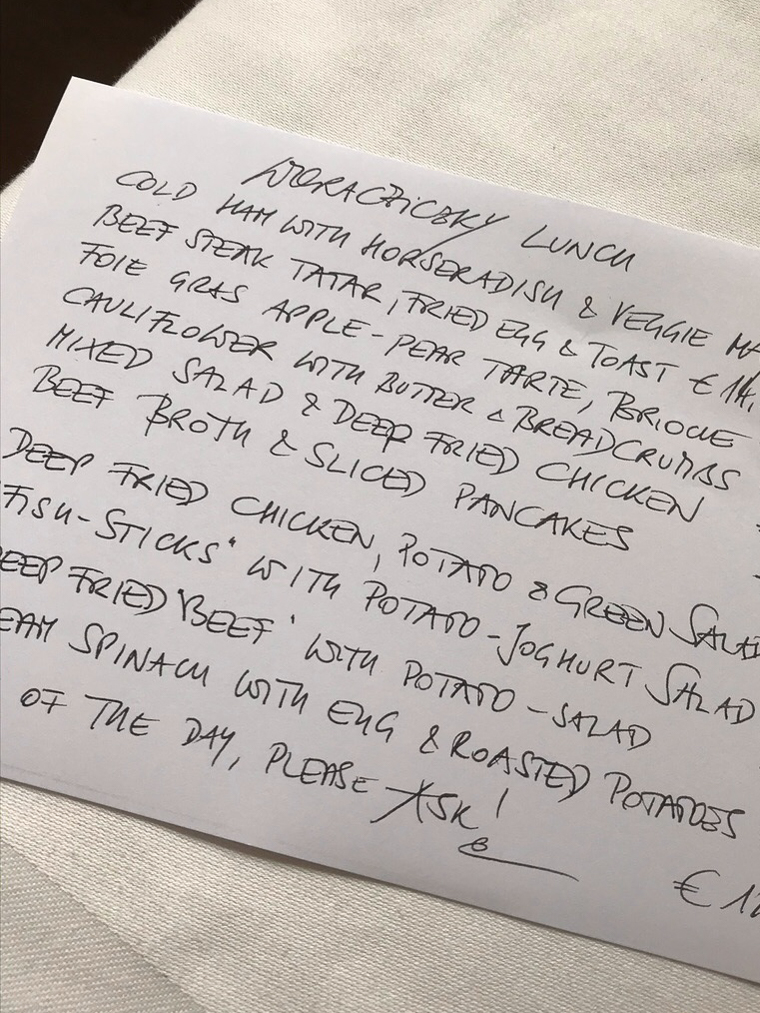 WORACZICZKY LUNCH
COLD HAM WITH HORSERADISH & VEGGIE
BEEF STEAK TATAR, FRIED EGG & TOAST € 14,
FOIE GRAS APPLE-PEAR TARTE, BRIOCHE
CAULIFLOWER WITH BUTTER & BREADCRUMBS
MIXED SALAD & DEEP FRIED CHICKEN
BEEF BROTH & SLICED PANCAKES
DEEP FRIED CHICKEN, POTATO & GREEN SALAD
FISH-STICKS" WITH POTATO-JOGHURT SALAD
DEEP FRIED 'BEEF' WITH POTATO-SALAD
EAM SPINACH WITH EGG & ROASTED POTATOES
OF THE DAY, PLEASE ASK!
€ 1